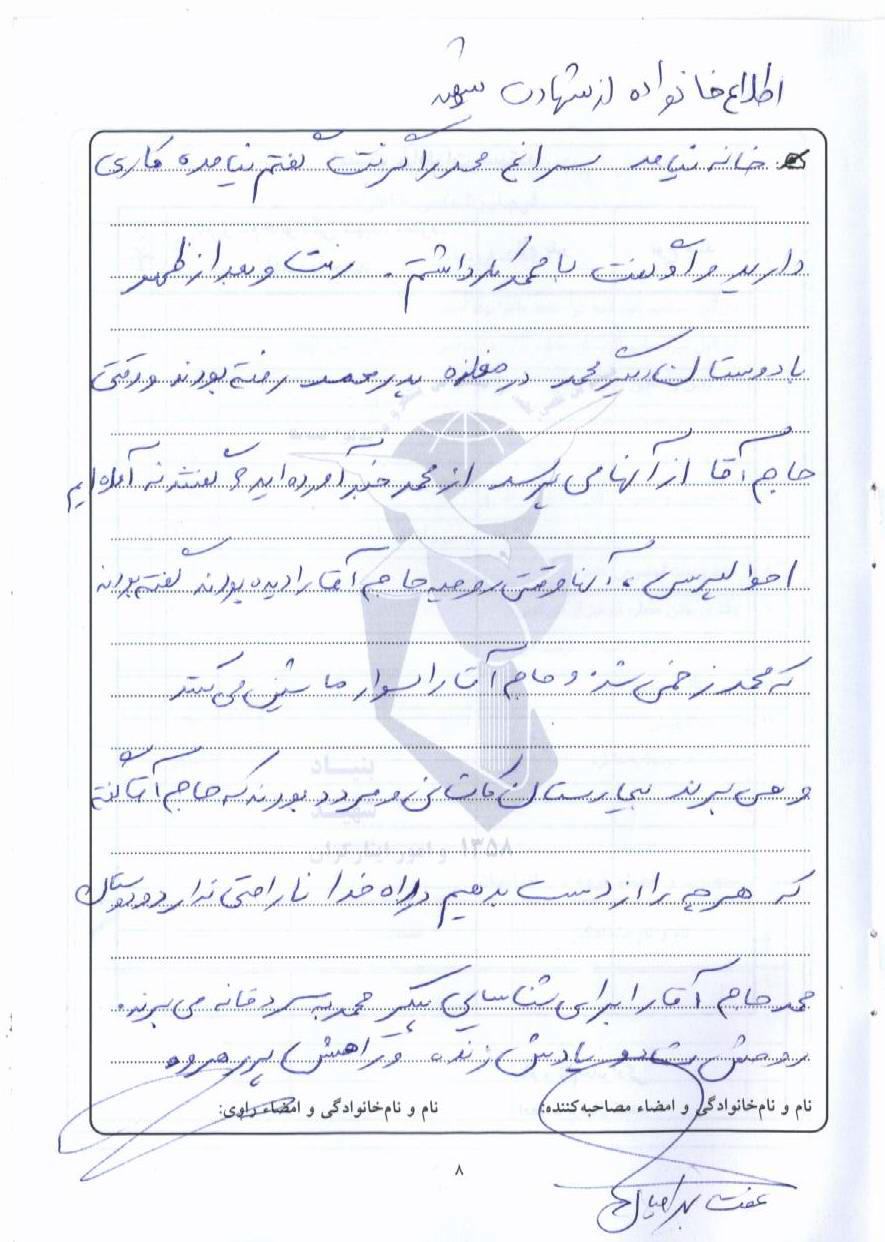 اطلاع خانواده از شهادت شهید
خانه نیامد سراغ محمد را گرفت گفتم نیامده کاری
دارید و او گفت با محمد کار داشتم. رفت و بعد از ظهر
با دوستان دیگر محمد در مغازه پدر محمد رفته بودند وقتی
حاج آقا از آنها می پرسد از محمد خبر آورده اید؟ گفتند نه آمده ایم
احوالپرسی، آنها وقتی روحیه حاج آقا را دیده بودند گفته بودند
که محمد زخمی شده و حاج آقا را سوار ماشین می کنند
و می برند بیمارستان کاشانی و مردد بودند که حاج آقا گفته
که هر چه را از دست بدهیم در راه خدا ناراحتی ندارد و دوستان
محمد حاج آقا را برای شناسایی پیکر محمد به سردخانه می برند.
روحش شاد و یادش زنده و راهش پر رهرو
نام و نام‌خانوادگی و امضاء مصاحبه‌کننده:
نام و نام‌خانوادگی و امضاء راوی:
بنیاد
شهید
و امور ایثارگران
۱۳۵۸
عفت
۸